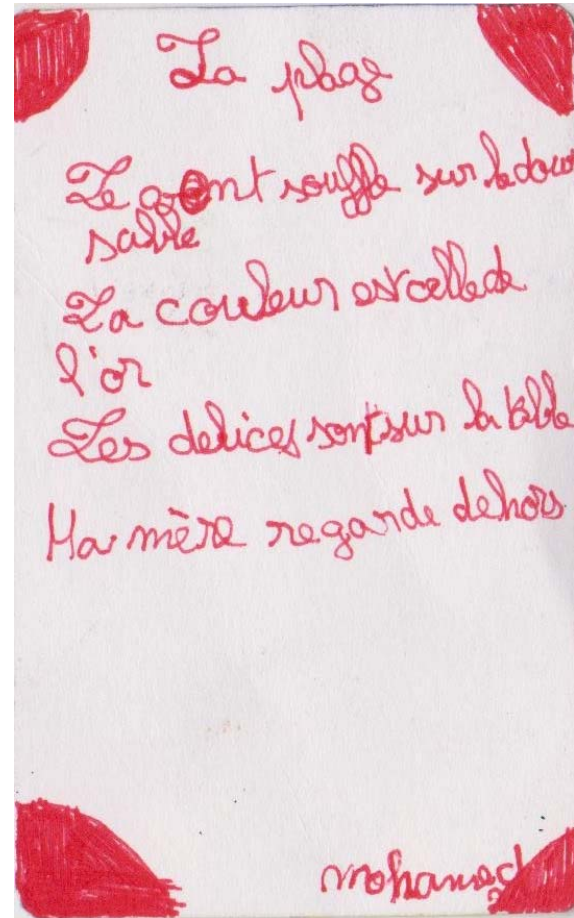 La plage
Le vent souffle sur le doux
sable
La couleur est celle de
l'or
Les delices sont sur la table
Ma mère regarde dehors
mohamed